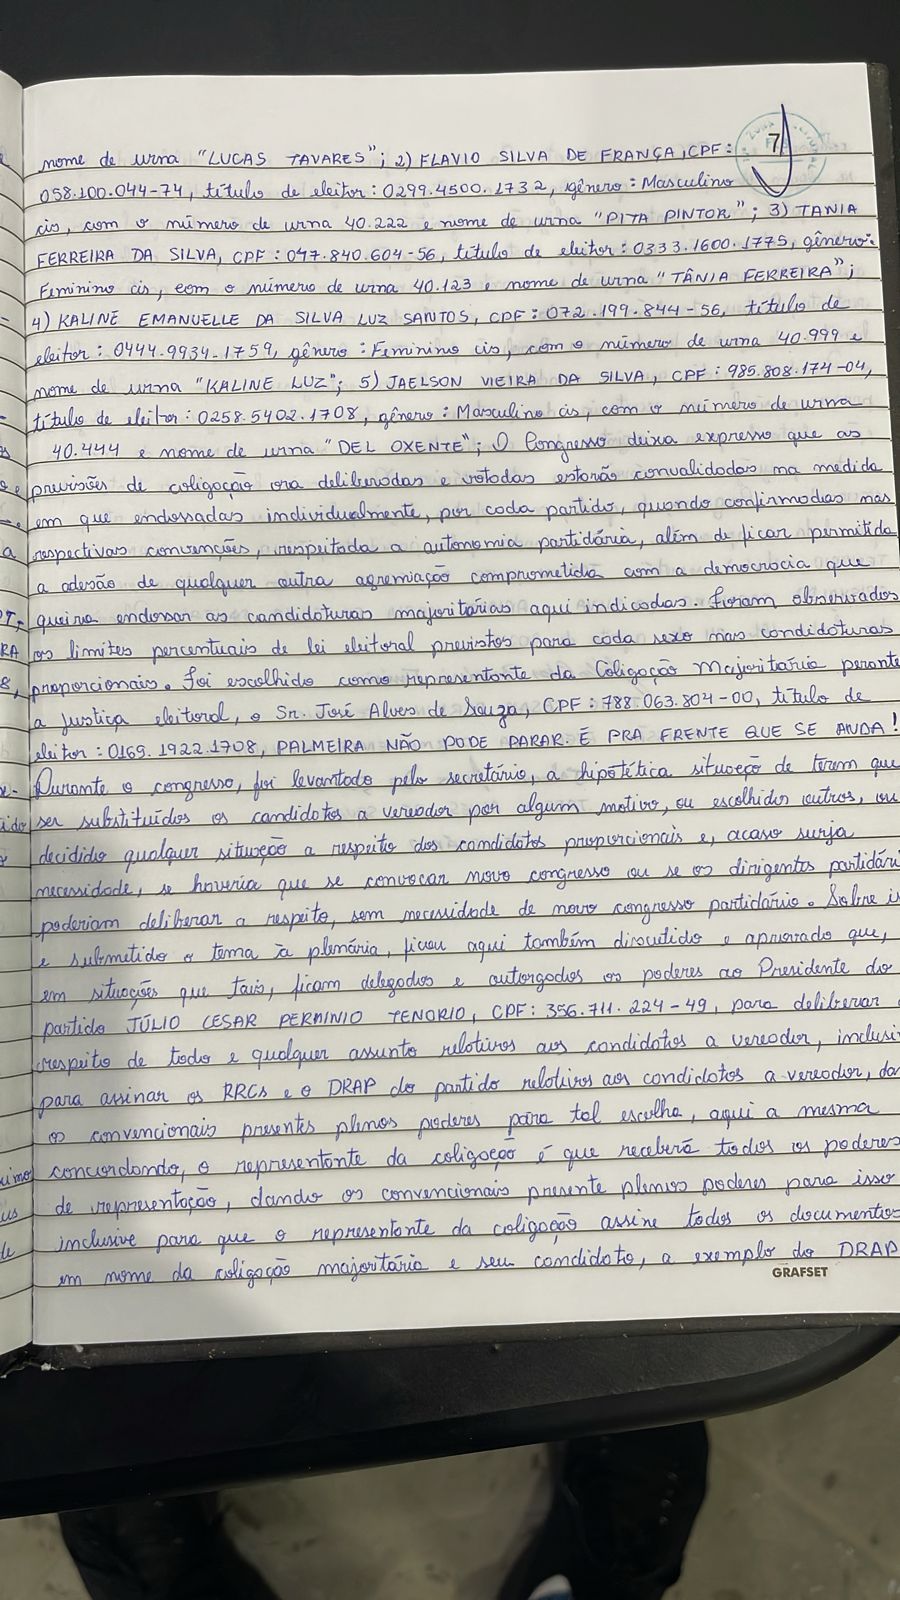 7
nome de urna "LUCAS TAVARES"; 2) FLAVIO SILVA DE FRANÇA, CPF:
058.100.044-74, título de eleitor: 0299.4500.1732, gênero: Masculino
cis, com o número de urna 40.222 e nome de urna "PITA PINTOR"; 3) TANIA
FERREIRA DA SILVA, CPF: 047.840.604-56, título de eleitor: 0333.1600.1775, gênero:
Feminino cis, com o número de urna 40.123 e nome de urna "TÂNIA FERREIRA";
4) KALINE EMANUELLE DA SILVA LUZ SANTOS, CPF: 072.199.844-56, título de
eleitor: 0444.9934.1759, gênero: Feminino cis, com o número de urna 40.999 e
nome de urna "KALINE LUZ"; 5) JAELSON VIEIRA DA SILVA, CPF: 985.808.174-04,
título de eleitor: 0258.5402.1708, gênero: Masculino cis, com o número de urna
40.444 e nome de urna "DEL OXENTE"; O Congresso deixa expresso que as
previsões de coligação ora deliberadas e votadas estarão convalidadas na medida
em que endossadas individualmente, por cada partido, quando confirmadas nas
respectivas convenções, respeitada a autonomia partidária, além de ficar permitida
a adesão de qualquer outra agremiação comprometida com a democracia que
queira endossar as candidaturas majoritárias aqui indicadas. Foram observados
os limites percentuais de lei eleitoral previstos para cada sexo nas candidaturas
proporcionais. Foi escolhido como representante da Coligação Majoritária perante
a justiça eleitoral, o Sr. José Alves de Souza, CPF: 788.063.804-00, título de
eleitor: 0169.1922.1708, PALMEIRA NÃO PODE PARAR. É PRA FRENTE QUE SE ANDA!
Durante o congresso, foi levantado pelo secretário, a hipotética situação de terem que
ser substituídos os candidatos a vereador por algum motivo, ou escolhidos outros, ou
decidido qualquer situação a respeito dos candidatos proporcionais e, acaso surja
necessidade, se haveria que se convocar novo congresso ou se os dirigentes partidári
poderiam deliberar a respeito, sem necessidade de novo congresso partidário. Sobre is
e submetido o tema à plenária, ficou aqui também discutido e aprovado que,
em situações que tais, ficam delegados e outorgados os poderes ao Presidente do
partido JÚLIO CESAR PERMINIO TENORIO, CPF: 356.711.224-49, para deliberar
respeito de todo e qualquer assunto relativos aos candidatos a vereador, inclusi
para assinar os RRCs e o DRAP do partido relativos aos candidatos a vereador, dan
os convencionais presentes plenos poderes para tal escolha, aqui a mesma
concordando, o representante da coligação é que receberá todos os poderes
de representação, dando os convencionais presente plenos poderes para isso
inclusive para que o representante da coligação assine todos os documentos
em nome da coligação majoritária e seu candidato, a exemplo do DRAP
GRAFSET